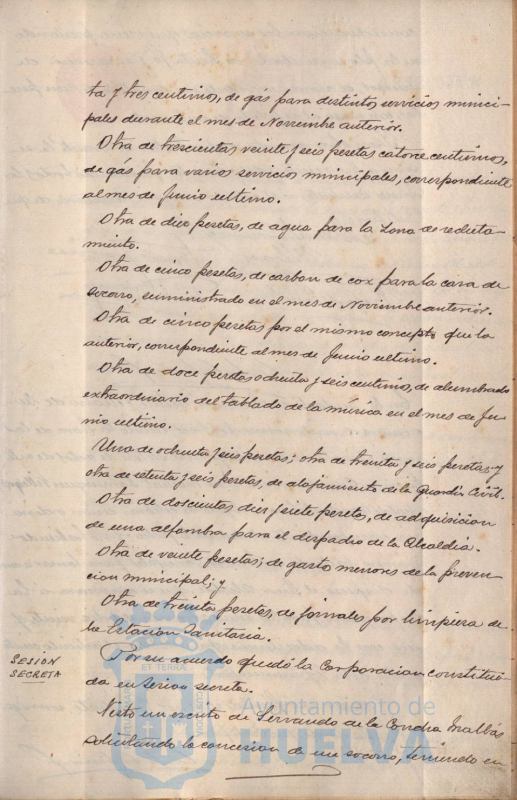 ta y tres centimos, de gás para distintos servicios munici-
pales durante el mes de Noviembre anterior.
Otra de trescientas veinte y seis pesetas catorce centimos,
de gás para varios servicios municipales, correspondiente
al mes de Junio ultimo.
Otra de diez pesetas, de agua para la Zona de recluta-
miento.
Otra de cinco pesetas, de carbon de cox para la casa de
socorro, suministrado en el mes de Noviembre anterior.
Otra de cinco pesetas por el mismo concepto que la
anterior, correspondiente al mes de Junio ultimo.
Otra de doce pesetas ochenta y seis centimos, de alumbrado
extraordinario del tablado de la música en el mes de Ju-
nio ultimo.
Una de ochenta y seis pesetas; otra de treinta y seis pesetas; y
otra de setenta y seis pesetas, de alojamiento de la Guardia Civil.
Otra de doscientas diez y siete pesetas, de adquisicion
de una alfombra para el despacho de la Alcaldia.
Otra de veinte pesetas; de gastos menores de la preven-
cion municipal; y
Otra de treinta pesetas, de jornales por limpieza de
la Estacion Sanitaria.
SESION
SECRETA
Por su acuerdo quedó la Corporacion constitui-
da en sesion secreta.
Visto un escrito de Servando de la Concha Malbás
solicitando la concesion de un socorro, teniendo en
Ayuntamiento de
HUELVA